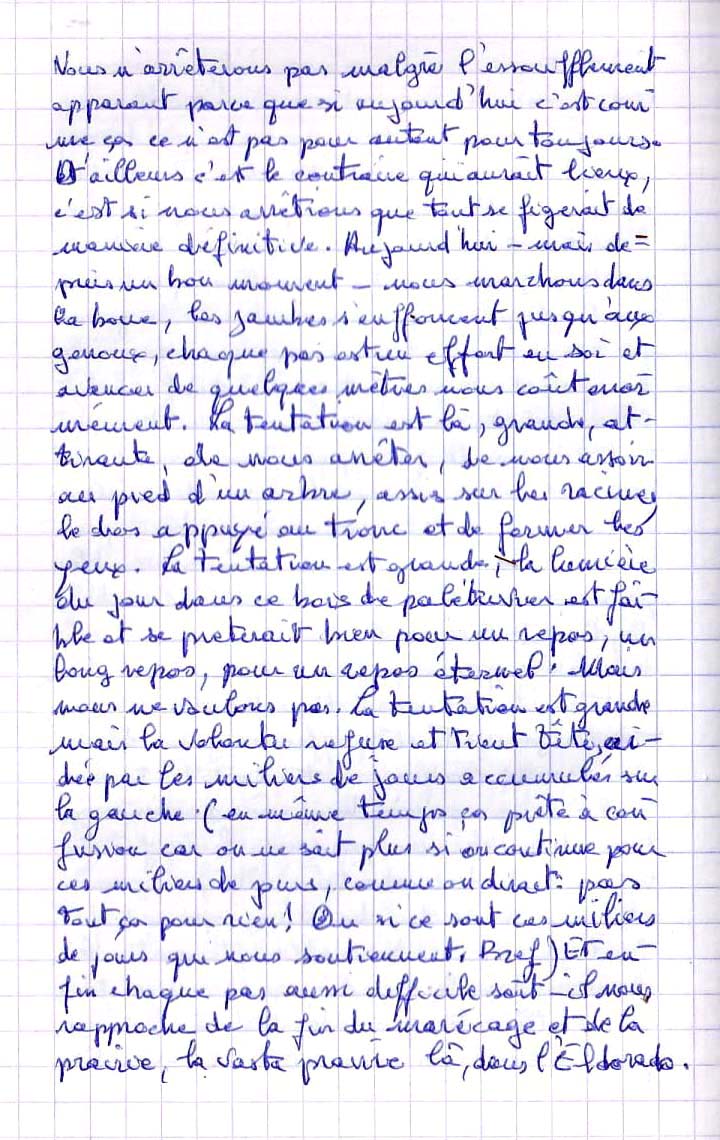 Nous n'arrêterons pas malgré l'essoufflement
apparent parce que si aujourd'hui c'est com
me ça ce n'est pas pour autant pour toujours.
D'ailleurs c'est le contraire qui aurait lieux,
c'est si nous arrêtions que tout se figerait de
manière définitive. Aujourd'hui - mais de=
puis un bon moment - nous marchons dans
la boue, les jambes s'enfoncent jusqu'aux
genoux, chaque pas est un effort en soi et
avancer de quelques mètres nous coûte énor
mément. La tentation est là, grande, at-
tirante, de nous arrêter, de nous assoir
au pied d'un arbre, assis sur les racines,
le dos appuyé au tronc et de fermer les
yeux. La tentation est grande, la lumière
du jour dans ce bois de palétuvier est fai-
ble et se preterait bien pour un repos, un
long repos, pour un repos éternel. Mais
nous ne voulons pas. La tentation est grande
mais la volonté refuse et tient tête, ai-
dée par les milliers de jours accumulés sur
la gauche. (en même temps ça prête à con
fusion car on ne sait plus si on continue pour
ces milliers de jours, comme on dirait: pas
tout ça pour rien! Ou si ce sont ces milliers
de jours qui nous soutiennent. Bref) Et en-
fin chaque pas aussi difficile soit-il nous
rapproche de la fin du marécage et de la
prairie, la vaste prairie là, dans l'Eldorado.